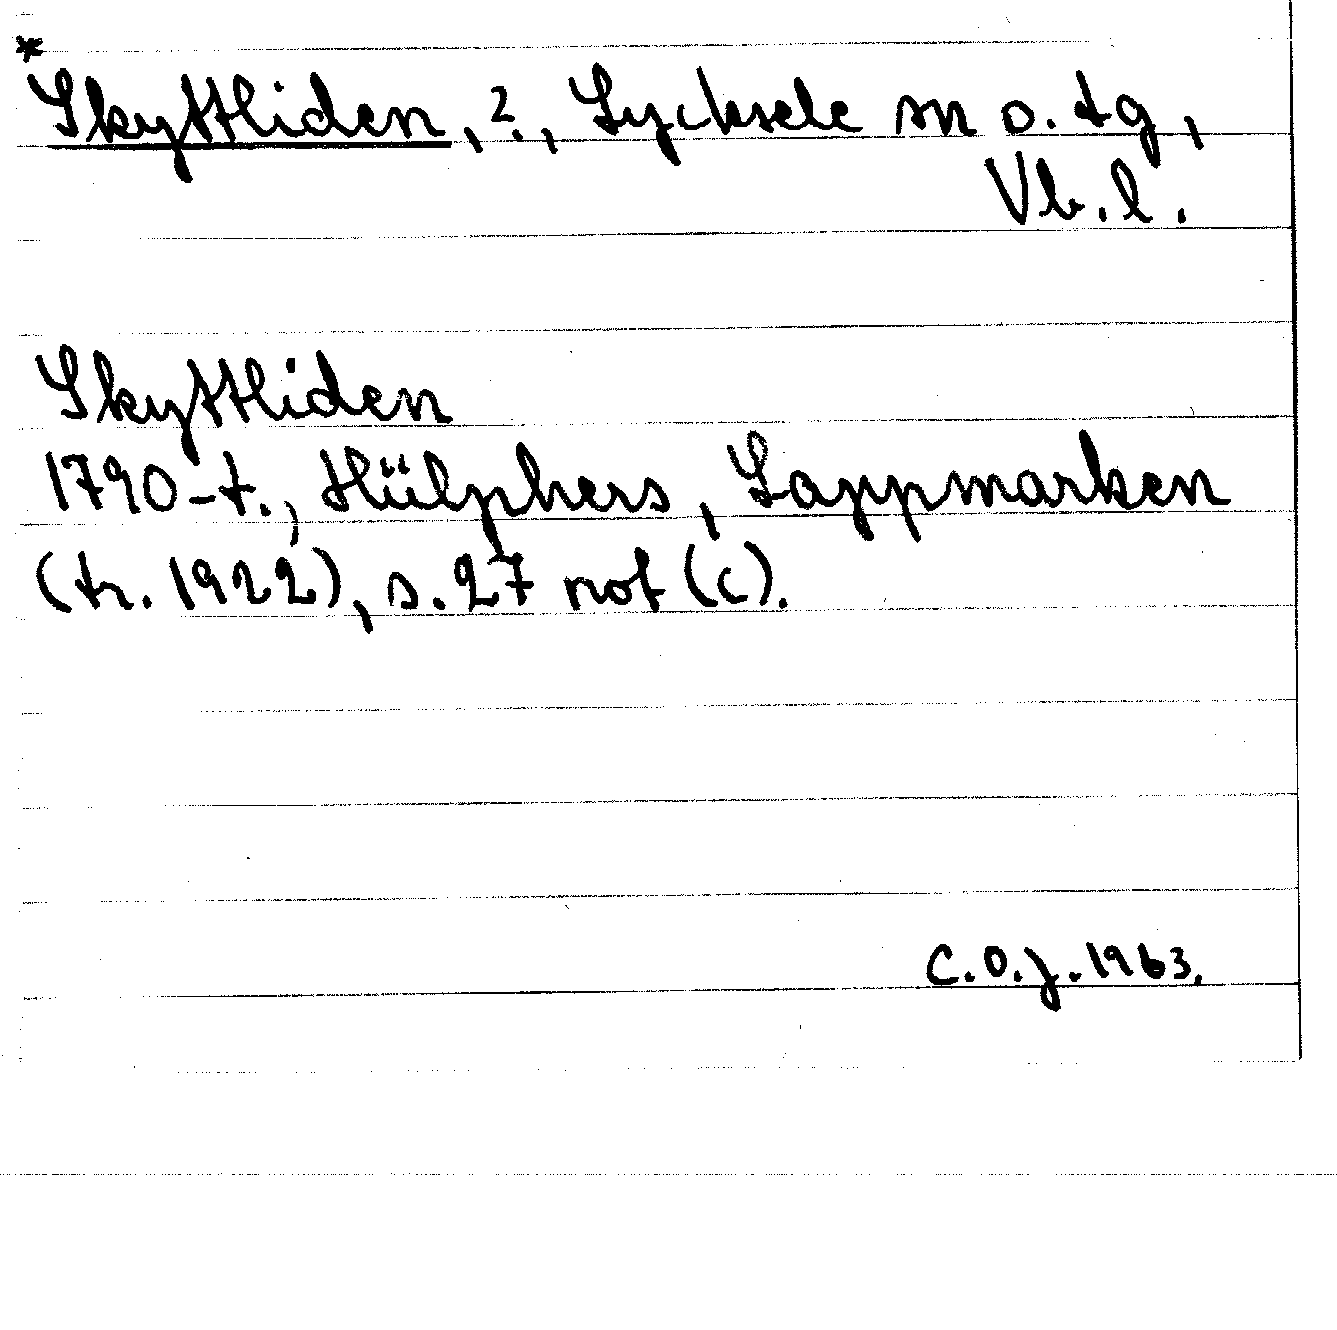 *
Skyttliden, ?., Lycksele sn o. tg,
Vb.l.
Skyttliden
1790-t., Hülphers, Lappmarken
(tr. 1922), s. 27 not (c).
C.O.J. 1963.